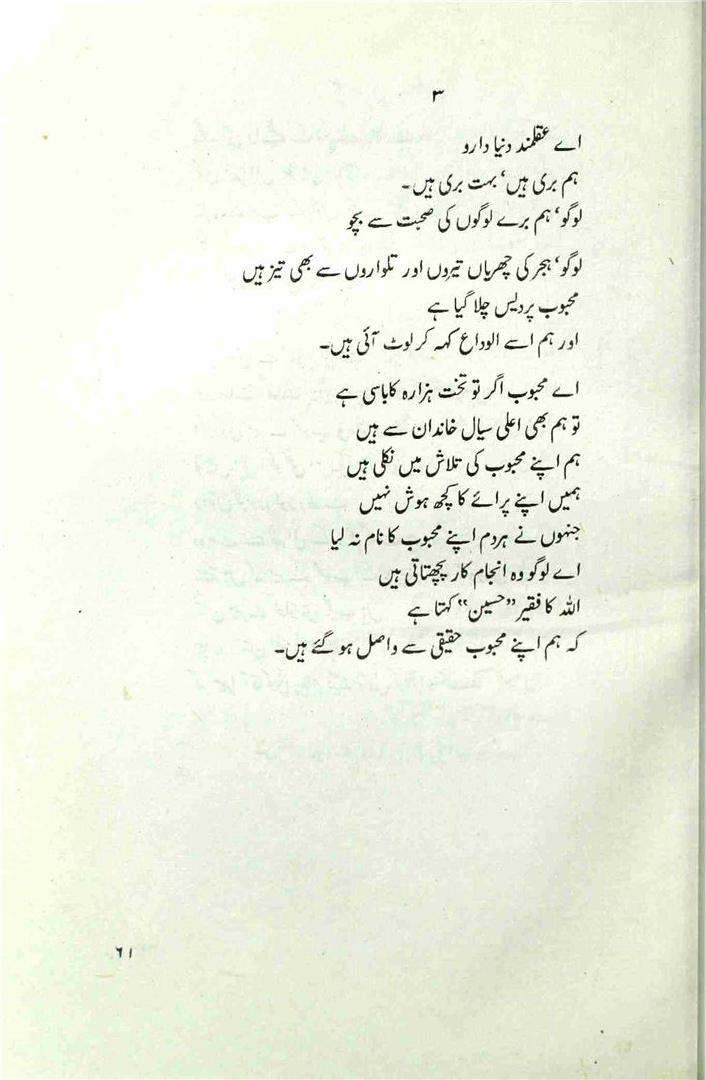 ۳
اے عقلمند دنیا دارو
ہم بری ہیں، بہت بری ہیں۔
لوگو، ہم برے لوگوں کی صحبت سے بچو
لوگو، ہجر کی چھریاں تیروں اور تلواروں سے بھی تیز ہیں
محبوب پردیس چلا گیا ہے
اور ہم اسے الوداع کہہ کر لوٹ آئی ہیں۔
اے محبوب اگر تو تخت ہزارہ کا باسی ہے
تو ہم بھی اعلی سیال خاندان سے ہیں
ہم اپنے محبوب کی تلاش میں نکلی ہیں
ہمیں اپنے پرائے کا کچھ ہوش نہیں
جنہوں نے ہردم اپنے محبوب کا نام نہ لیا
اے لوگو وہ انجام کار پچھتاتی ہیں
اللہ کا فقیر "حسین" کہتا ہے
کہ ہم اپنے محبوب حقیقی سے واصل ہو گئے ہیں۔
۶۱